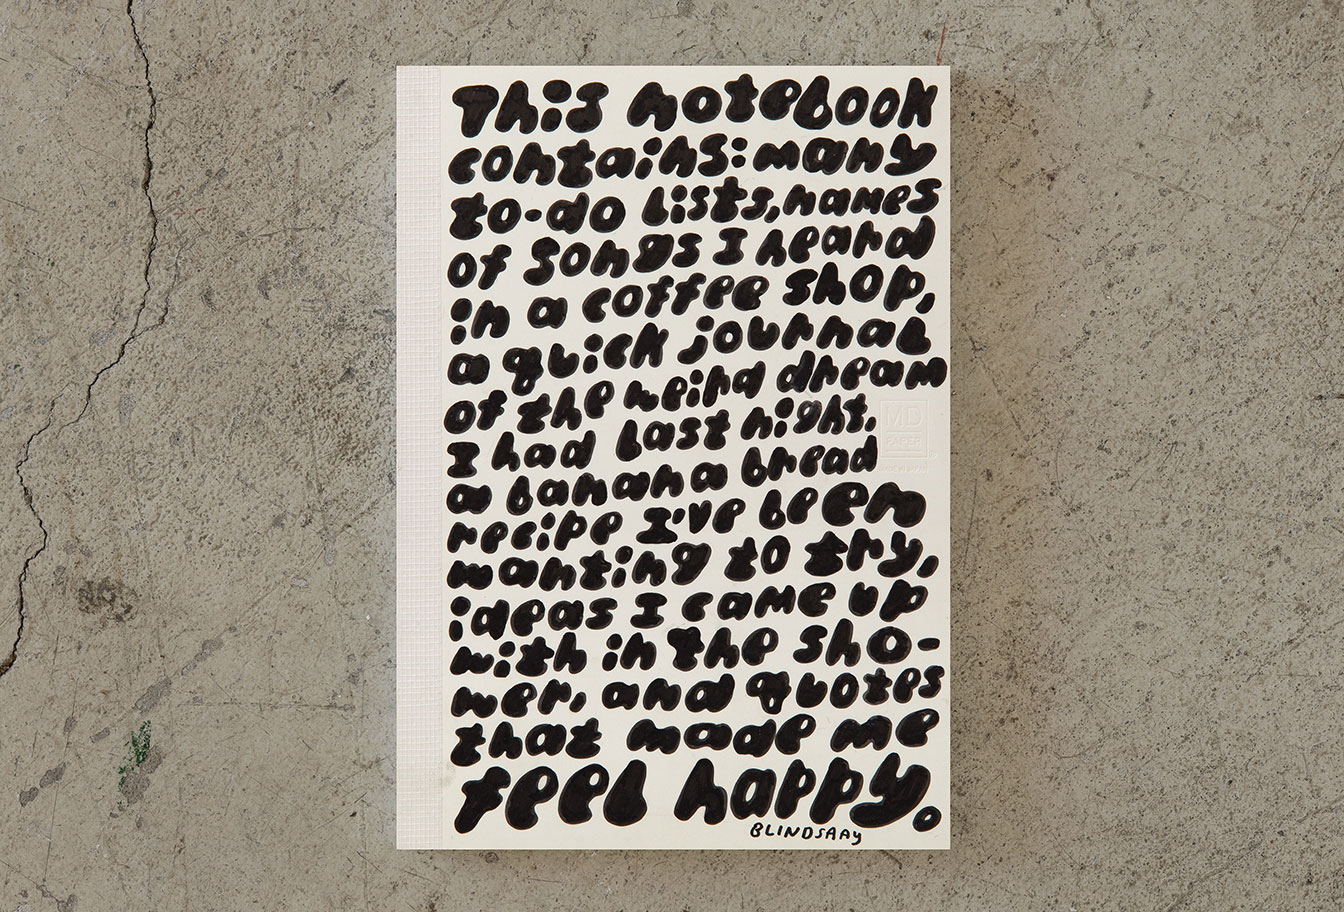 This notebook
contains: many
to-do lists, names
of songs I heard
in a coffee shop,
a quick journal
of the weird dream
I had last night,
a banana bread
recipe I've been
wanting to try,
ideas I came up
with in the sho-
wer, and quotes
that made me
feel happy.
BLINDSAAY
MD
PAPER
MADE IN JAPAN